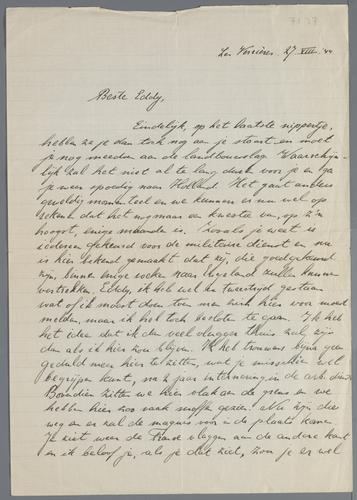 7137
Les Verrières, 27 VIII '44
Beste Eddy,
Eindelijk, op het laatste nippertje,
hebben ze je dan toch nog aan je staart en moet
je nog meedoen aan de landbouwslag. Waarschijn-
lijk zal het niet al te lang duren voor je en ga
je weer spoedig naar Holland. Het gaat anders
geweldig momenteel en we kunnen er nu wel op
rekenen dat het nog maar een kwestie van, op z'n
hoogst, enige maanden is. Zoals je weet is
iedereen gekeurd voor de militaire dienst en nu
is hier bekend gemaakt dat zij, die goedgekeurd
zijn, binnen enige weken naar Engeland zullen kunnen
vertrekken. Eddy, ik heb wel in tweestrijd gestaan
wat of ik moest doen toen men zich hier voor moest
melden, maar ik heb toch besloten te gaan. Ik heb
het idee dat ik dan veel vlugger thuis zal zijn
dan als ik hier zou blijven. Ik heb trouwens bijna geen
geduld meer hier te zitten, wat je misschien wel
begrijpen kunt, na 2 jaar internering in de arb. dienst.
Bovendien zitten we hier vlak aan de grens en we
hebben hier zoo vaak moffen gezien. Nu zijn die
weg en er zal de maquis voor in de plaats komen.
Je ziet weer de Franse vlaggen aan de andere kant
en ik beloof je, als je dat ziet, zou je er wel